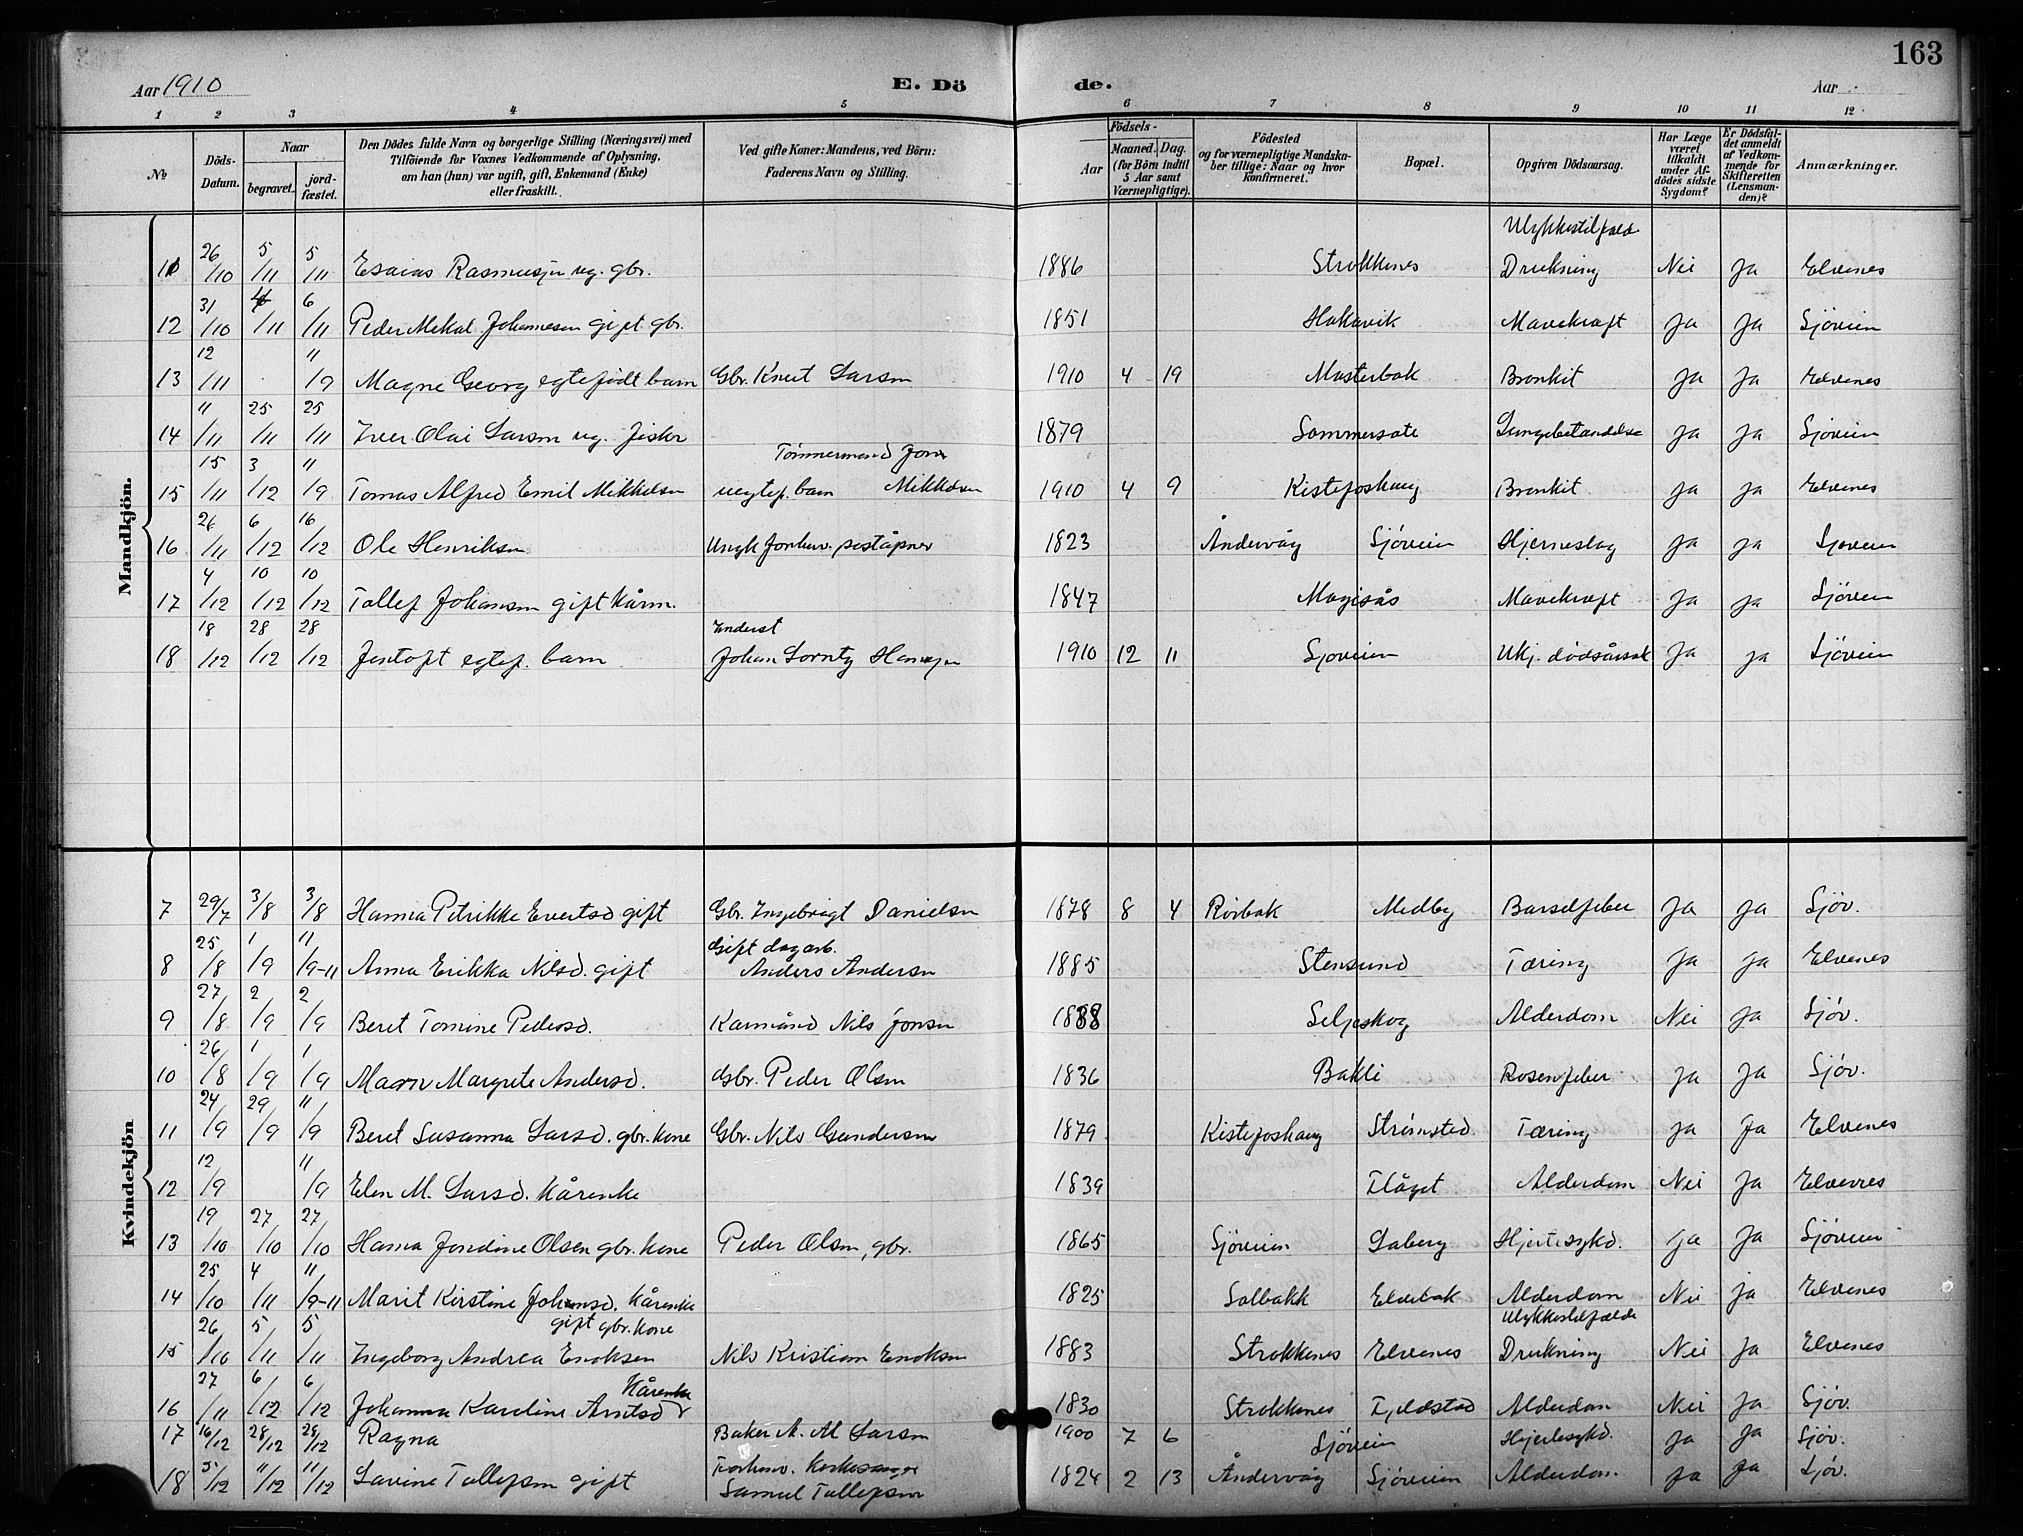 163
Aar 1910 E. Dö de. Aar
1 2 3 4 5 6 7 8 9 10 11 12
№ Döds-Datum. Naar begravet. jord-fæstet. Den Dödes fulde Navn og borgerlige Stilling (Næringsvei) med Tilföiende for Voxnes Vedkommende af Oplysning, om han (hun) var ugift, gift, Enkemand (Enke) eller fraskilt. Ved gifte Koner: Mandens, ved Börn: Faderens Navn og Stilling. Födsels- Aar Maaned. Dag. (for Börn indtil 5 Aar samt Værnepligtige). Födested og for værnepligtige Mandskaber tillige: Naar og hvor konfirmeret. Bopæl. Opgiven Dödsaarsag. Har Læge været tilkaldt under Afdödes sidste Sygdom? Er Dödsfaldet anmeldt af Vedkommende for Skifteretten (Lensmanden)? Anmærkninger.
Mandkjön.
Ulykkestilfælde
11 26/10 5/11 5/11 Esaias Rasmussen ug. gbr. 1886 Strokkenes Drukning Nei Ja Elvenes
12 31/10 4/11 6/11 Peder Mekal Johannesen gift gbr. 1851 Hakavik Mavekræft Ja Ja Sjøveien
13 12/11 11/9 Magne Georg egtefødt barn Gbr. Knut Larsen 1910 4 19 Masterbak Bronkit Ja Ja Elvenes
14 11/11 25/11 25/11 Iver Olai Larsen ug. fisker 1879 Sommersæte Lungebetændelse Ja Ja Sjøveien
Tømmermand Jon
15 15/11 3/12 11/9 Tomas Alfred Emil Mikkelsen uegtef. barn Mikkelsen 1910 4 9 Kistefoshaug Bronkit Ja Ja Elvenes
16 26/11 6/12 16/12 Ole Henriksen Ungk. forhenv. poståpner 1823 Åndervåg Sjøveien Hjerneslag Ja Ja Sjøveien
17 4/12 10/12 10/12 Tollef Johansen gift kårm. 1847 Mogisås Mavekræft Ja Ja Sjøveien
18 18/12 28/12 28/12 Jentoft egtef. barn Johan Lorntz Hansen 1910 12 11 Sjøveien Ukj. dødsårsak Ja Ja Sjøveien
Kvindekjön
7 29/7 3/8 3/8 Hanna Petrikke Evertsd gift Gbr. Ingebrigt Danielsen 1878 8 4 Rørbak Medby Barselfeber Ja Ja Sjøv.
Gift dagarb.
8 25/8 1/9 11/9-11 Anna Erikka Nilsd. gift Anders Andersen 1885 Stensund Tæring Ja Ja Elvenes
9 27/8 2/9 2/9 Beret Tomine Pedersd. Kårmand Nils Jonsen 1838 Seljeskog Alderdom Nei Ja Sjøv.
10 26/8 1/9 1/9 Maren Margrete Andersd. Gbr. Peder Olsen 1836 Bakli Rosenfeber Ja Ja Sjøv.
11 24/9 29/9 11/9 Beret Susanna Larsd. gbr. kone Gbr. Nils Gundersen 1879 Kistefoshaug Strømsted. Tæring Ja Ja Elvenes
12 12/9 11/9 Elen M. Larsd. kårenke 1839 Flåget Alderdom Nei Ja Elvenes
13 19/10 27/10 27/10 Hanna Jondine Olsen gbr. kone Peder Olsen, gbr. 1865 Sjøveien Laberg Hjertesykd. Ja Ja Sjøveien
14 25/10 4/11 11/9-11 Marit Kirstine Johansd. kårenke 1825 Solbakk Elvebak Alderdom Nei Ja Elvenes
gift gbr. kone Ulykkestilfælde
15 26/10 5/11 5/11 Ingeborg Andrea Enoksen Nils Kristian Enoksen 1883 Strokkenes Elvenes Drukning Nei Ja Elvenes
Kårenke
16 27/11 6/12 6/12 Johanna Karoline Arntsd 1830 Strokkenes Fjeldstad Alderdom Nei Ja Sjøv.
17 16/12 28/12 28/12 Ragna Baker A. M Larsen 1900 7 6 Sjøveien Hjertesykd. Ja Ja Sjøv.
18 5/12 11/12 11/12 Lavine Tollefsen gift Forhenv. kirkesanger 1824 2 13 Åndervåg Sjøveien Alderdom. Ja Ja Sjøv.
Samuel Tollefsen